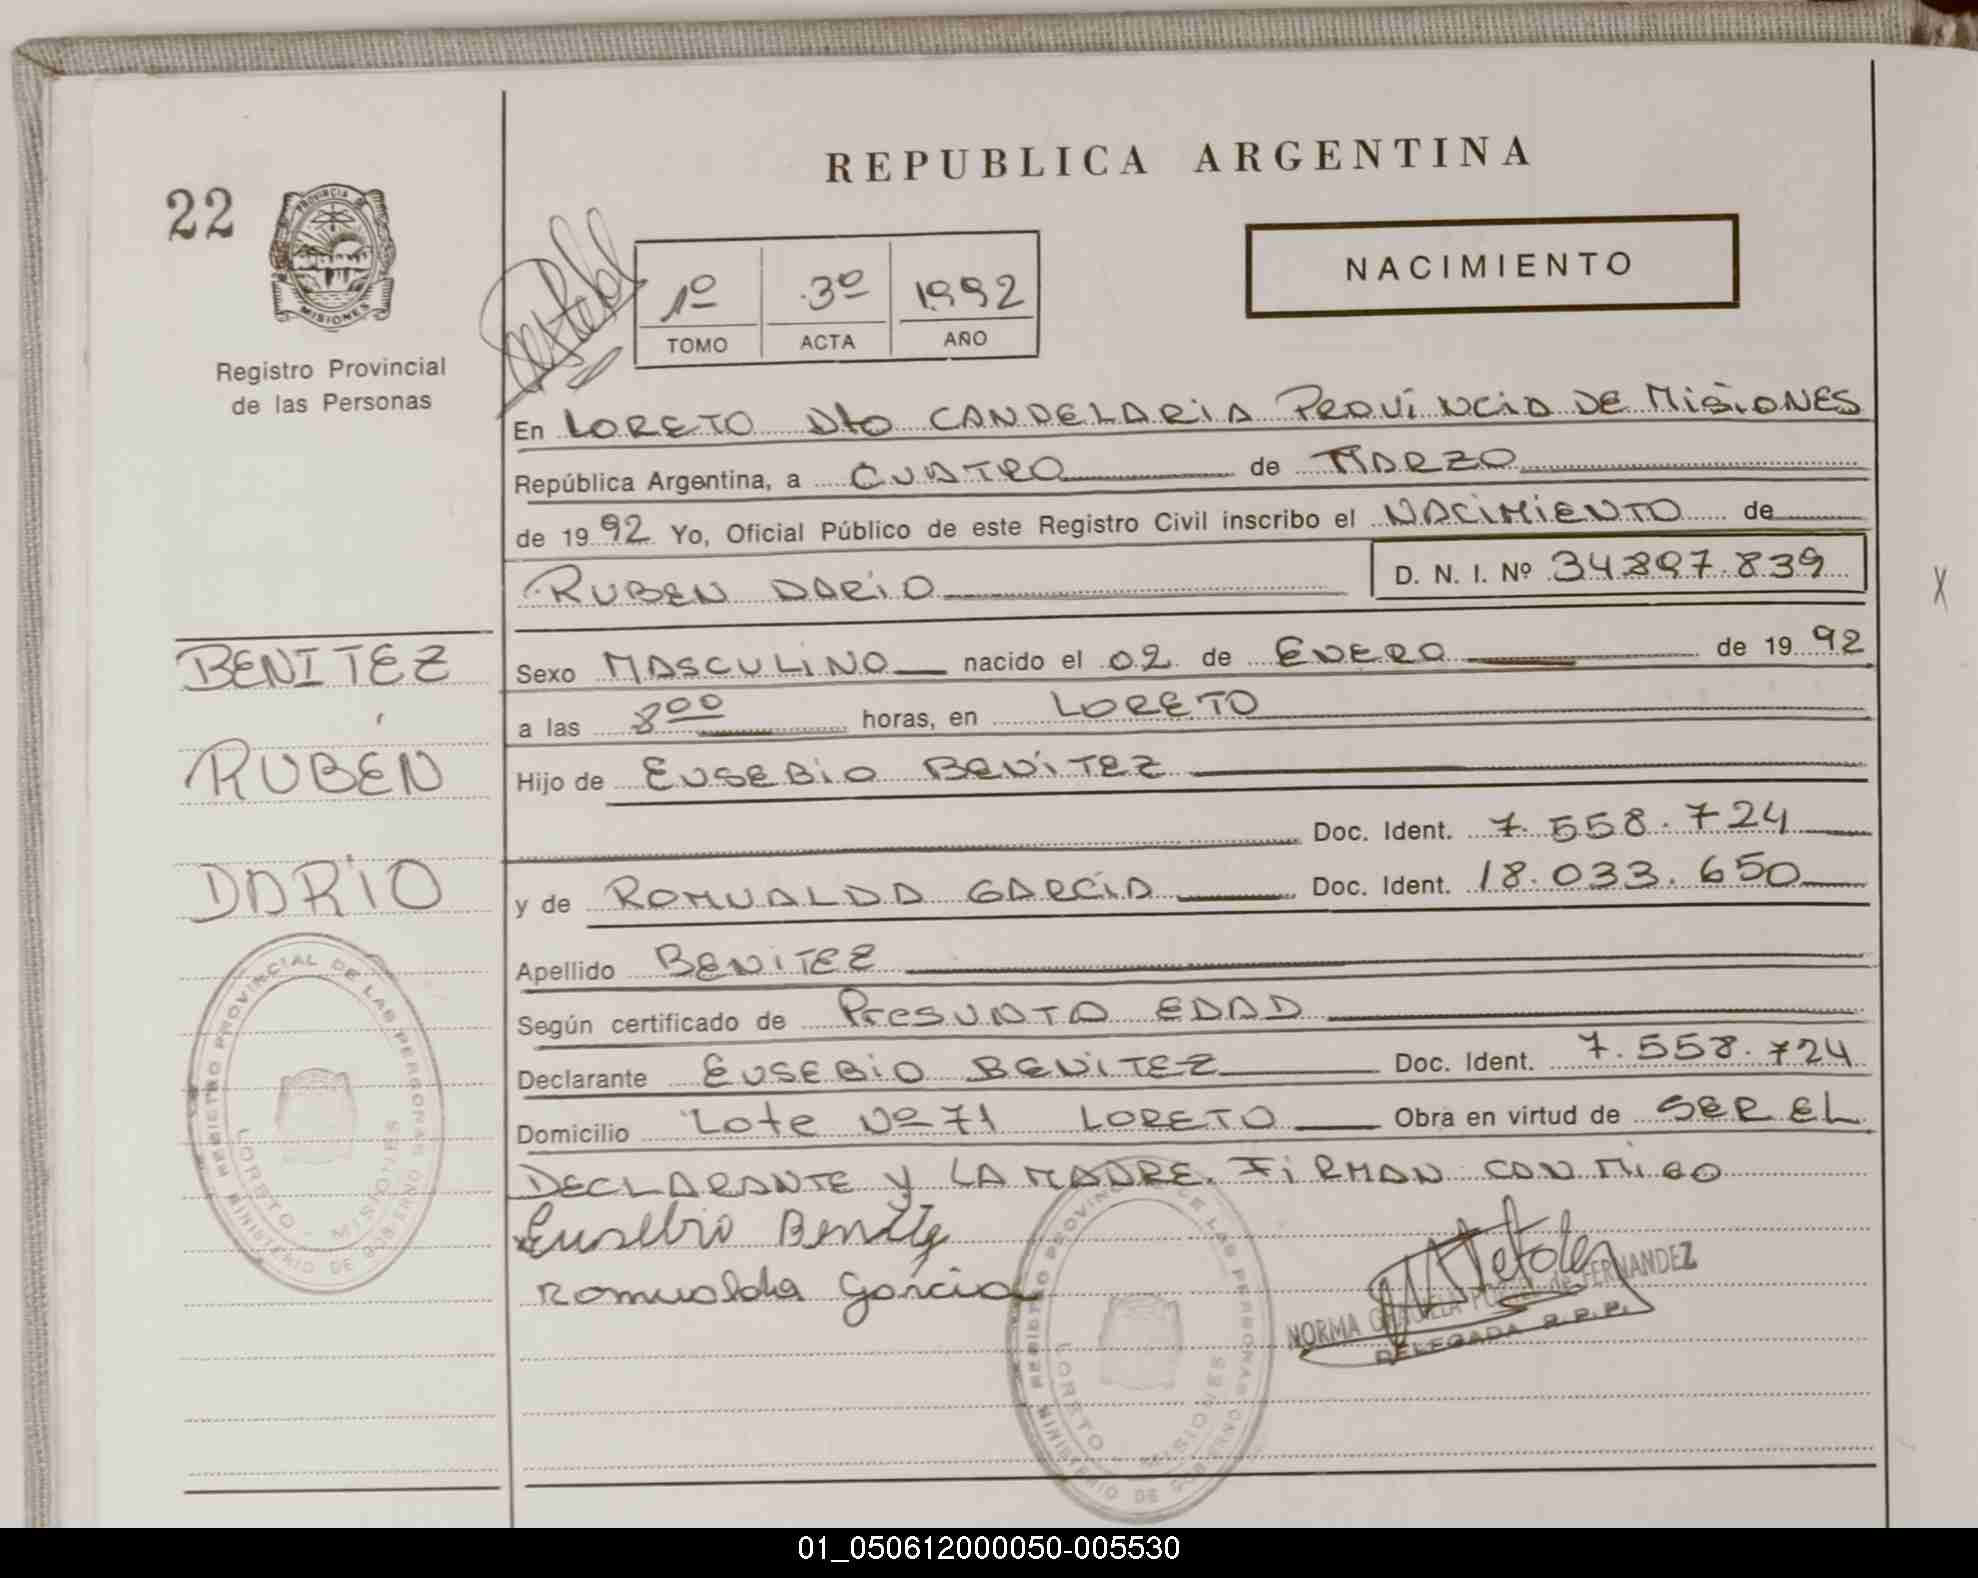 REPUBLICA ARGENTINA
22
PROVINCIA DE
MISIONES
Registro Provincial
de las Personas
1º 3º 1992
TOMO ACTA AÑO
NACIMIENTO
En LORETO Dto CANDELARIA PROVINCIA DE MISIONES
República Argentina, a CUATRO de MARZO
de 1992 Yo, Oficial Público de este Registro Civil inscribo el NACIMIENTO de
RUBEN DARIO D. N. I. Nº 34.897.839
Sexo MASCULINO nacido el 02 de ENERO de 1992
a las 8 00 horas, en LORETO
Hijo de EUSEBIO BENITEZ
Doc. Ident. 7.558.724
y de ROMUALDA GARCÍA Doc. Ident. 18.033.650
Apellido BENITEZ
Según certificado de PRESUNTA EDAD
Declarante EUSEBIO BENITEZ Doc. Ident. 7.558.724
Domicilio Lote Nº 71 LORETO Obra en virtud de SER EL
DECLARANTE Y LA MADRE. FIRMAN CONMIGO
Eusebio Benitez
Romualda Garcia
BENITEZ
RUBÉN
DARIO
REGISTRO PROVINCIAL DE LAS PERSONAS
MINISTERIO DE GOBIERNO
LORETO - MISIONES
REGISTRO PROVINCIAL DE LAS PERSONAS
MINISTERIO DE GOBIERNO
LORETO - MISIONES
NORMA GRACIELA de FERNANDEZ
DELEGADA R.P.P.
X
01_050612000050-005530